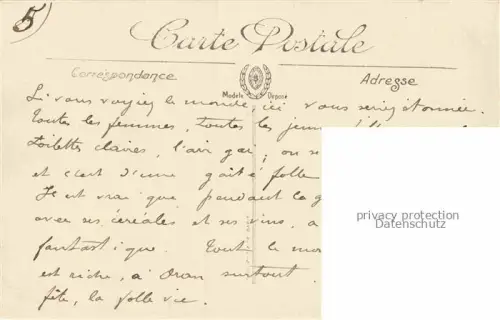 5)
Carte Postale
Correspondance
Adresse
Modèle Déposé
Si vous voyiez le monde ici vous seriez étonnée.
Toutes les femmes, toutes les jeunes
toilettes claires, l'air gai; on se
et c'est d'une gaité folle
Il est vrai que pendant la g
avec ses céréales et ses vins, a
fantastique. Tout le mon
est riche, à Oran surtout.
fête, la folle vie.
privacy protection
Datenschutz